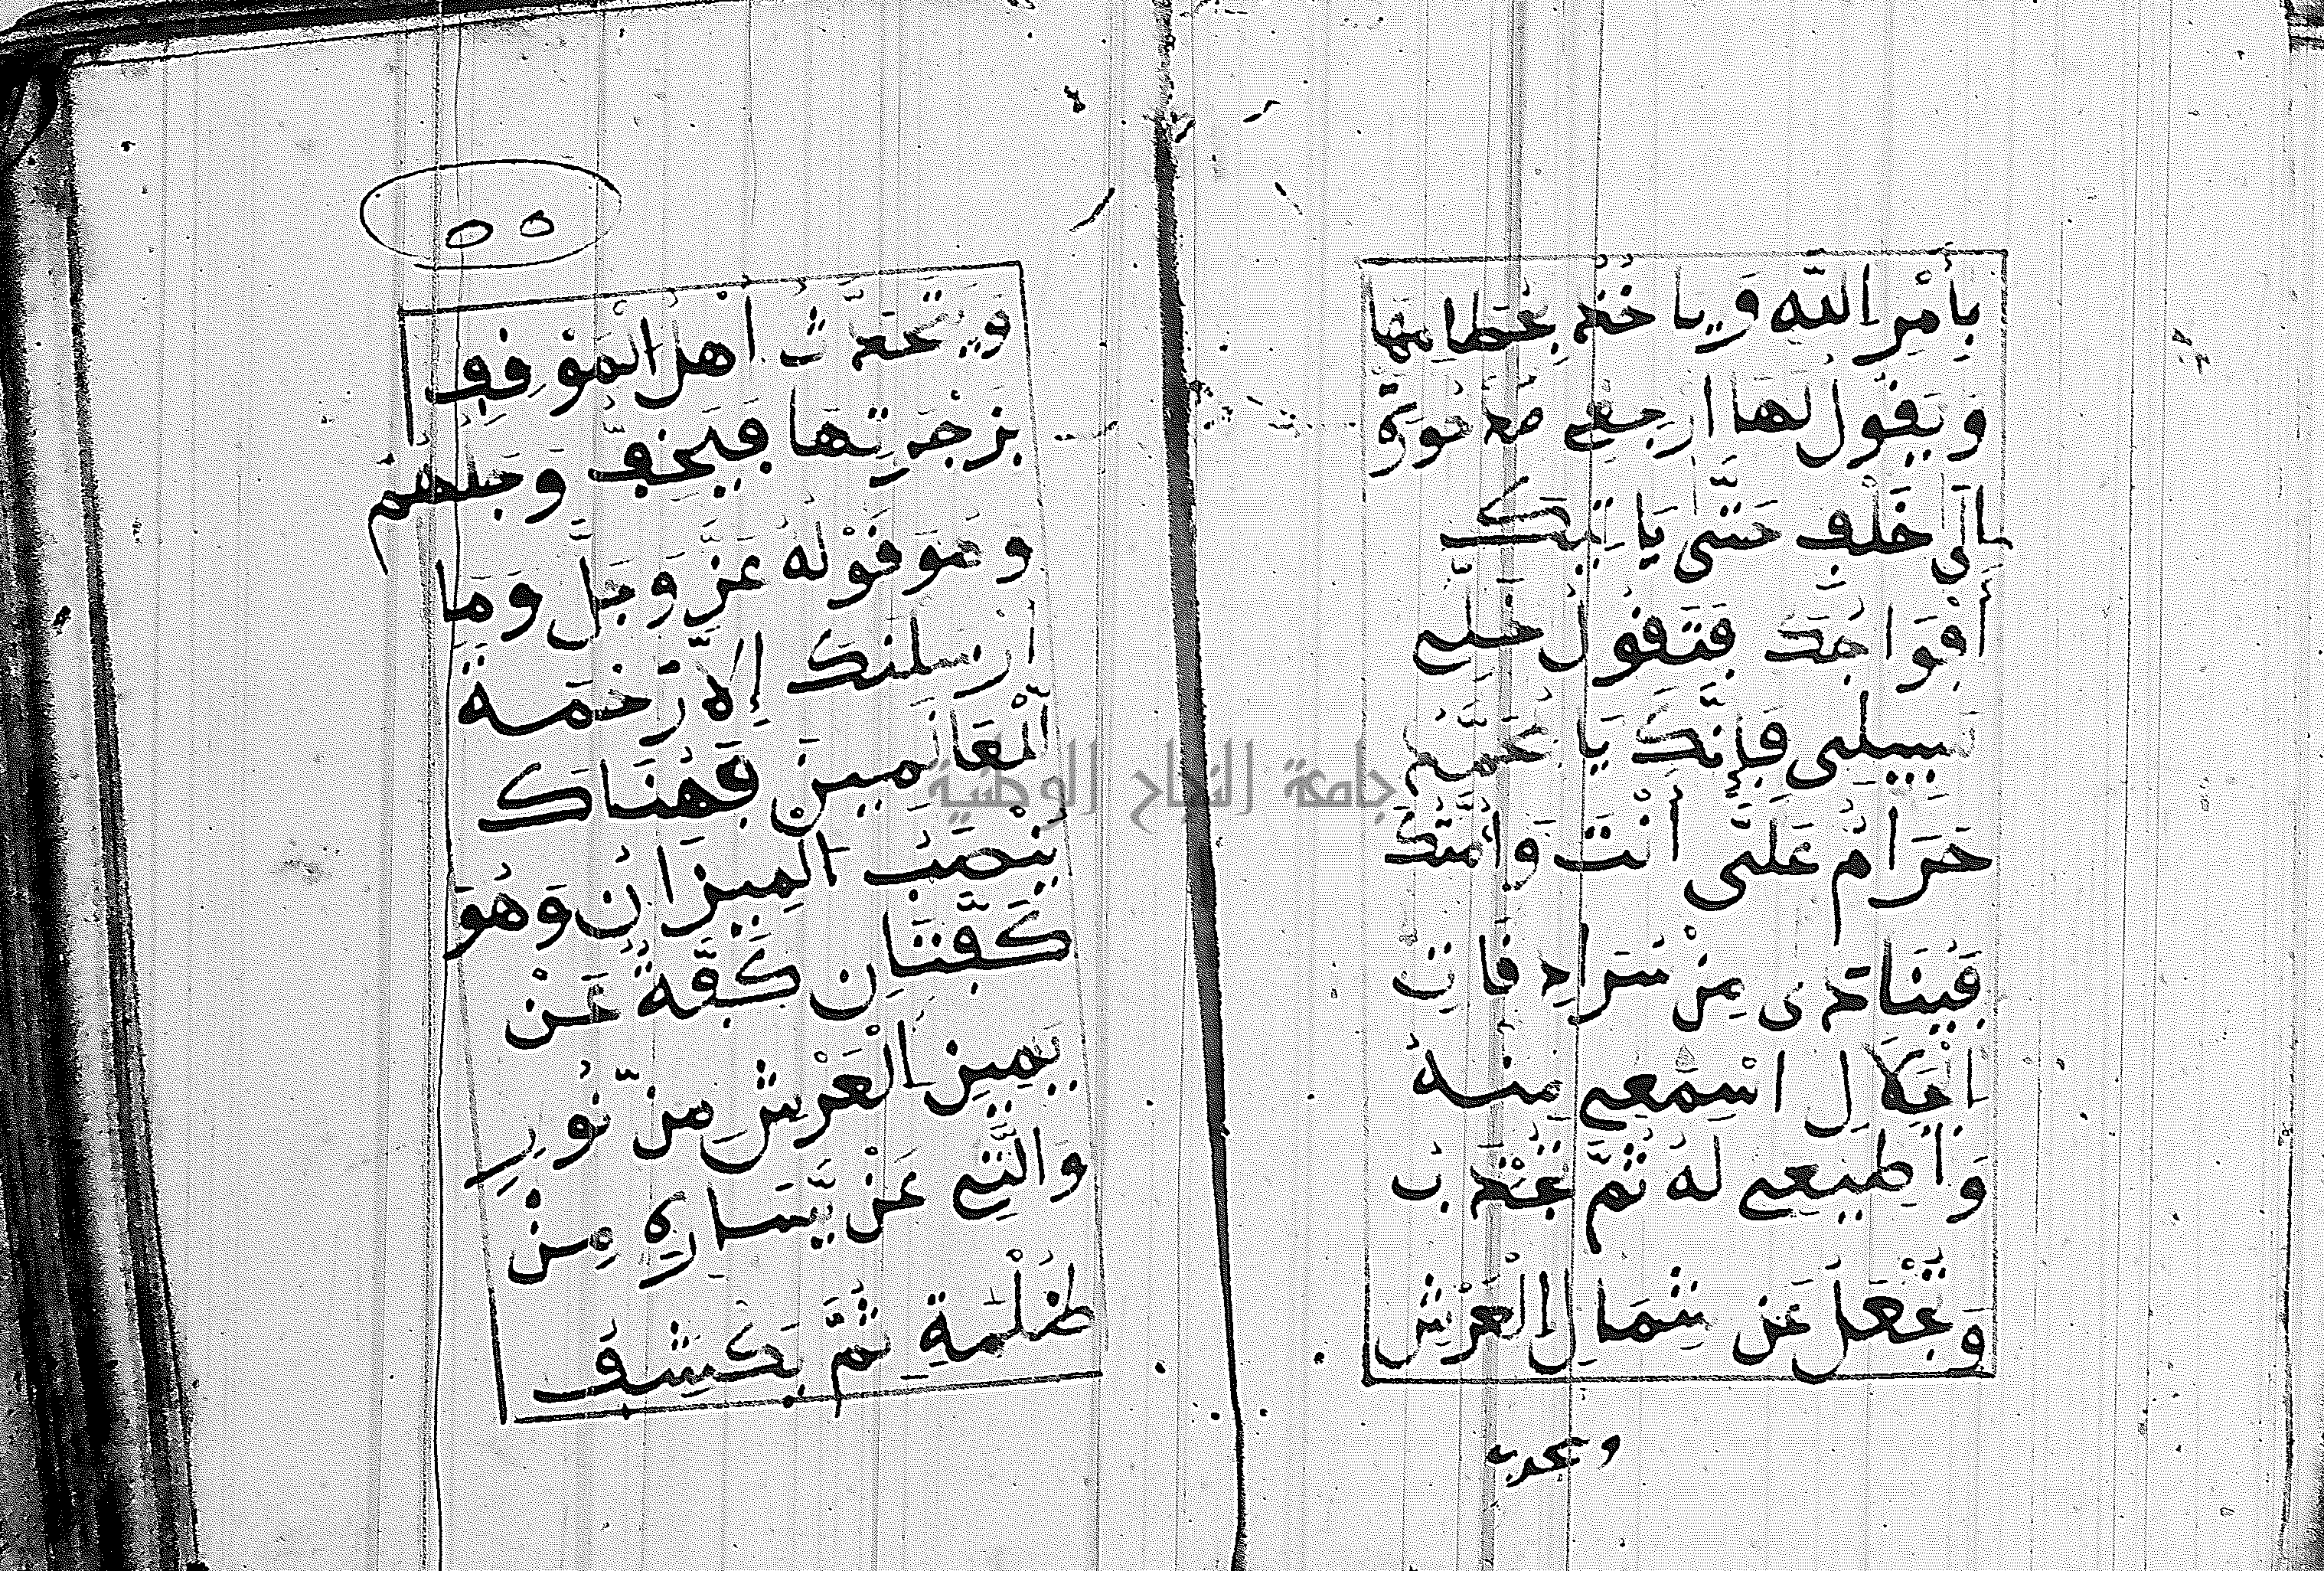 بِأَمْرِ اللَّهِ وَيَاخُذُ بِخِطَامِهَا
وَيَقُولُ لَهَا ارْجِعِي مَدْحُورَةً
إِلَى خَلْفِ حَتَّى يَاتِيَكِ
أَفْوَاجُكِ فَتَقُولُ خَلِّ
سَبِيلِي فَإِنَّكَ يَا مُحَمَّدُ
حَرَامٌ عَلَيَّ أَنْتَ وَأُمَّتُكَ
فَيُنَادَى مِنْ سُرَادِقَاتِ
الْجَلَالِ اسْمَعِي مِنْهُ
وَأَطِيعِي لَهُ ثُمَّ تُجْذَبُ
وَتُجْعَلُ عَن شِمَالِ الْعَرْشِ
وَيَتَحَدَّثُ أَهْلُ الْمَوْقِفِ
بِزَجْرَتِهَا فَيَخِفُّ وَجَلُهُمْ
وَهُوَ قَوْلُهُ عَزَّ وَجَلَّ وَمَا
أَرْسَلْنَكَ إِلَّا رَحْمَةً
لِّلْعَالَمِينَ فَهُنَاكَ
يُنْصَبُ الْمِيزَانُ وَهُوَ
كَفَّتَانِ كَفَّةٌ عَنْ
يَمِينِ الْعَرْشِ مِن نُّورٍ
وَالَّتِي عَنْ يَّسَارِهِ مِنْ
ظُلْمَةٍ ثُمَّ يَكْشِفُ